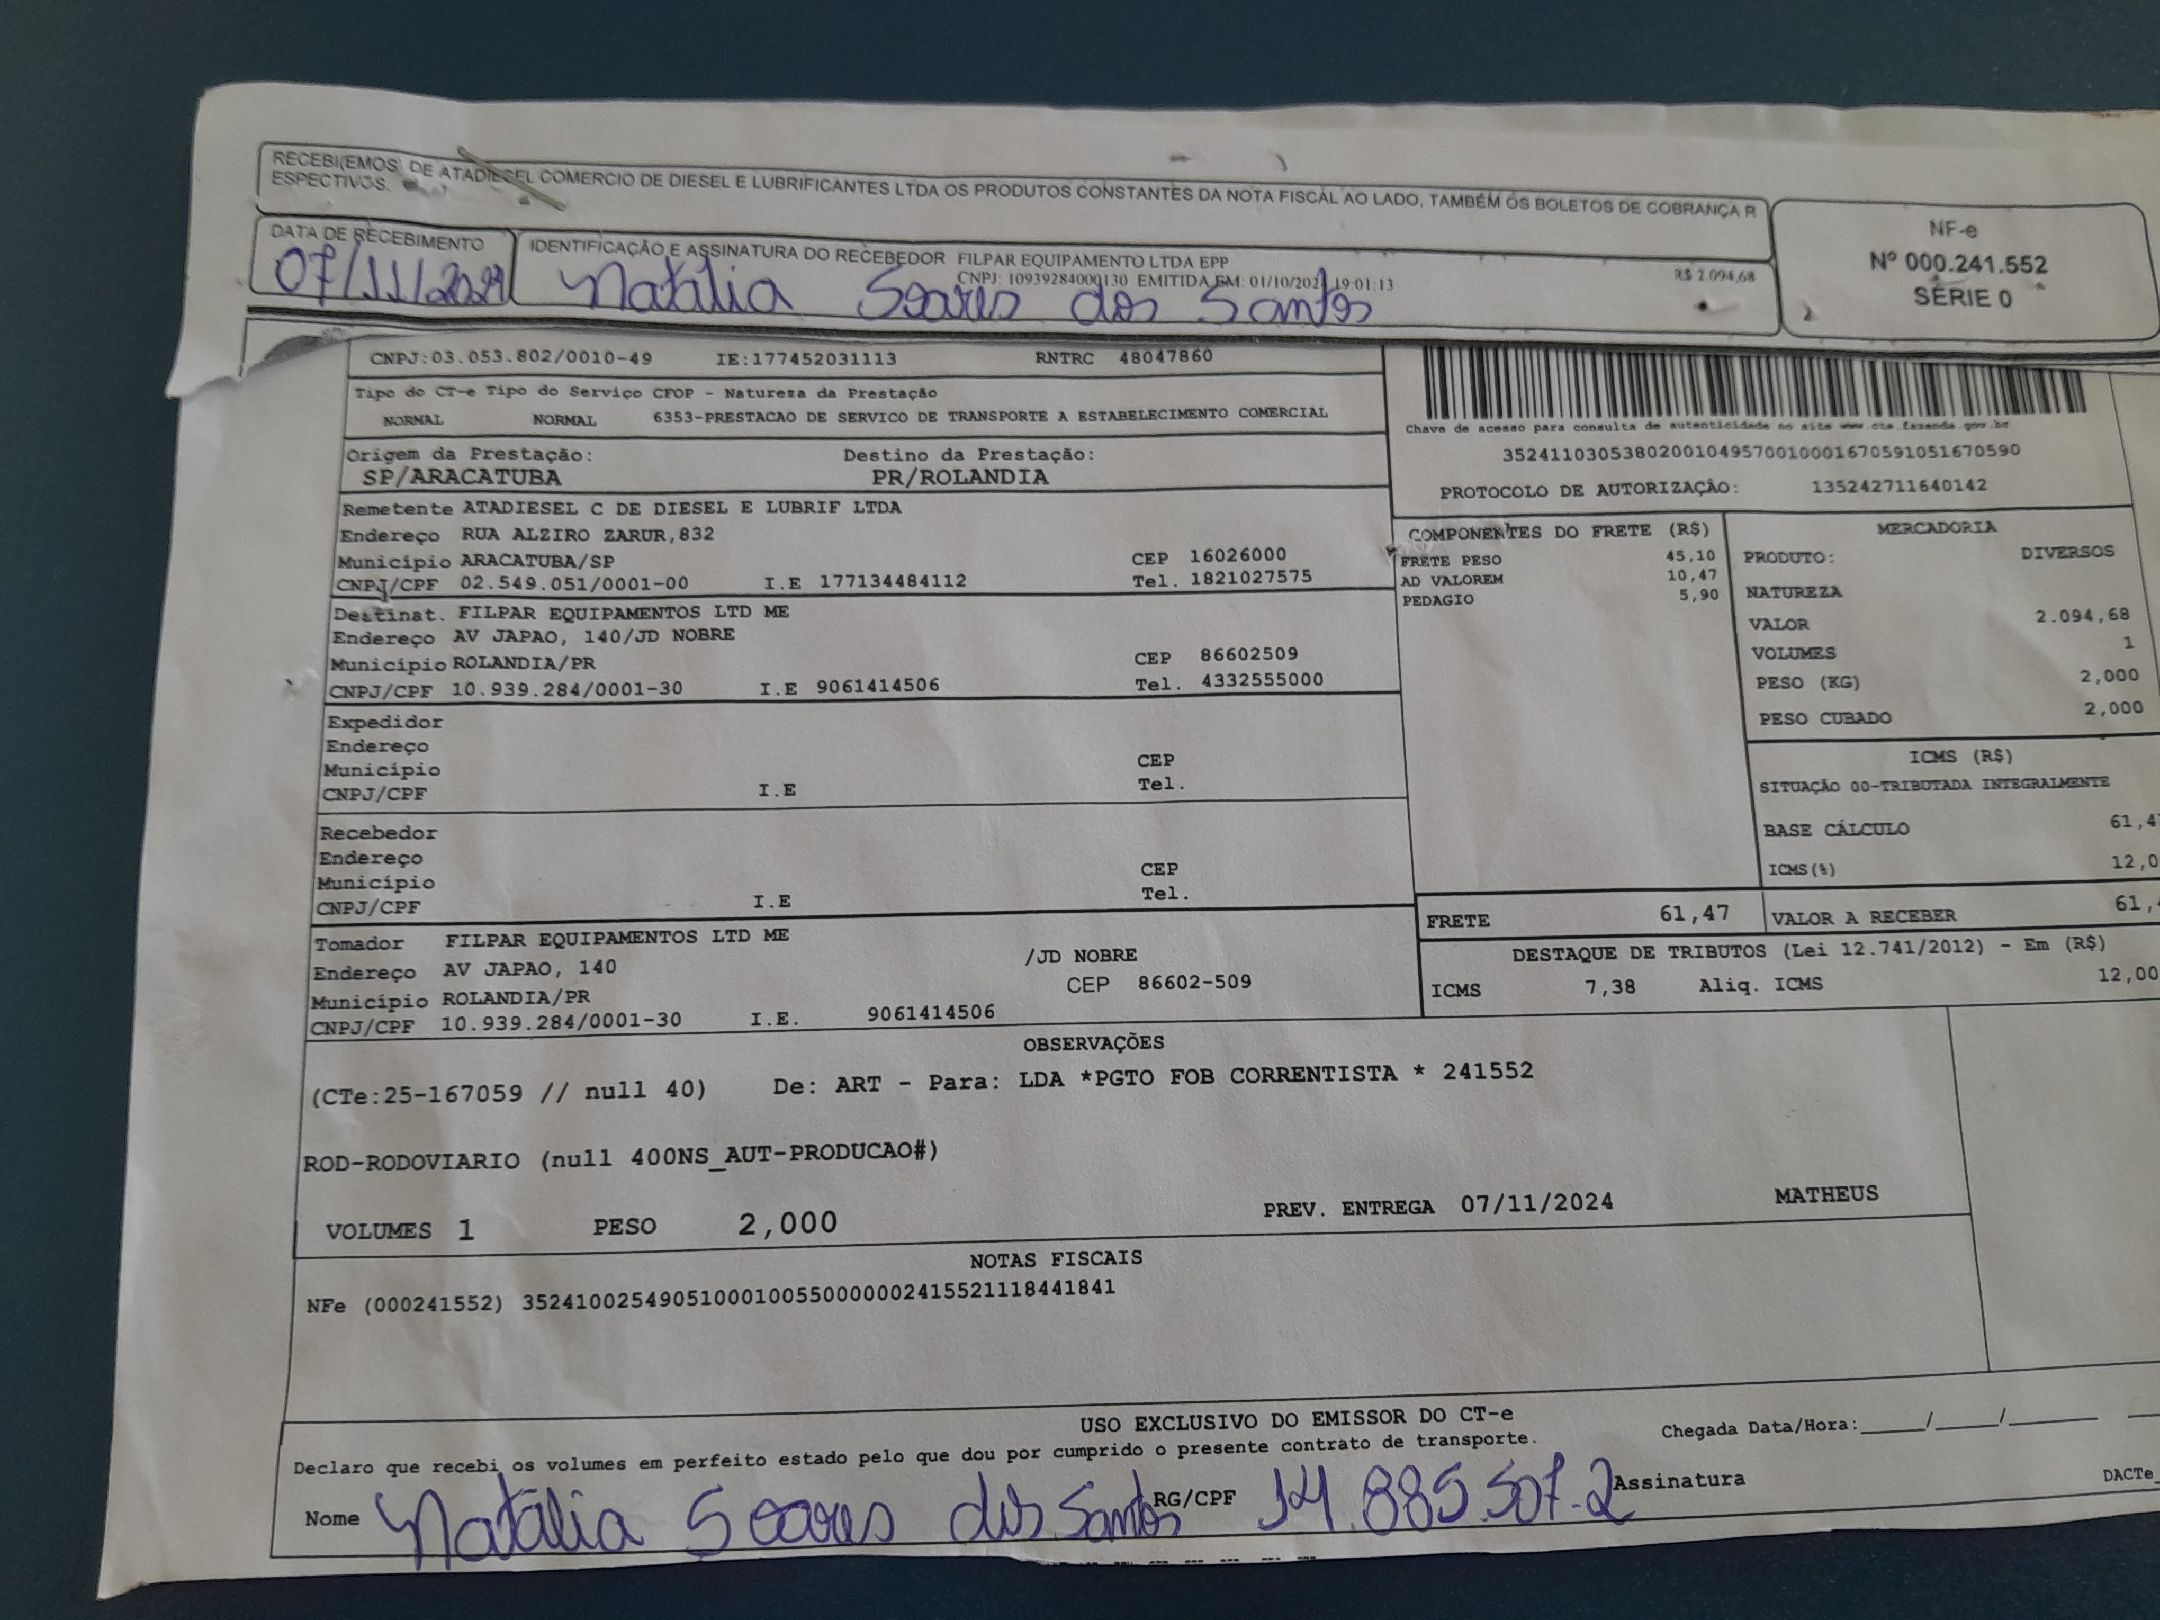 RECEBI(EMOS) DE ATADIESEL COMERCIO DE DIESEL E LUBRIFICANTES LTDA OS PRODUTOS CONSTANTES DA NOTA FISCAL AO LADO, TAMBÉM OS BOLETOS DE COBRANÇA R
ESPECTIVOS.
NF-e
Nº 000.241.552
SÉRIE 0
DATA DE RECEBIMENTO
07/11/2024
IDENTIFICAÇÃO E ASSINATURA DO RECEBEDOR FILPAR EQUIPAMENTO LTDA EPP
CNPJ: 10939284000130 EMITIDA EM: 01/10/2024 19:01:13
R$ 2.094,68
Natalia Soares dos Santos
CNPJ:03.053.802/0010-49 IE:177452031113 RNTRC 48047860
Tipo do CT-e Tipo do Serviço CFOP - Natureza da Prestação
NORMAL NORMAL 6353-PRESTACAO DE SERVICO DE TRANSPORTE A ESTABELECIMENTO COMERCIAL
Chave de acesso para consulta de autenticidade no site www.cte.fazenda.gov.br
35241103053802001049570010001670591051670590
PROTOCOLO DE AUTORIZAÇÃO: 135242711640142
Origem da Prestação: Destino da Prestação:
SP/ARACATUBA PR/ROLANDIA
Remetente ATADIESEL C DE DIESEL E LUBRIF LTDA
Endereço RUA ALZIRO ZARUR,832
Município ARACATUBA/SP CEP 16026000
CNPJ/CPF 02.549.051/0001-00 I.E 177134484112 Tel. 1821027575
Destinat. FILPAR EQUIPAMENTOS LTD ME
Endereço AV JAPAO, 140/JD NOBRE
Município ROLANDIA/PR CEP 86602509
CNPJ/CPF 10.939.284/0001-30 I.E 9061414506 Tel. 4332555000
Expedidor
Endereço
Município CEP
CNPJ/CPF I.E Tel.
Recebedor
Endereço
Município CEP
CNPJ/CPF I.E Tel.
Tomador FILPAR EQUIPAMENTOS LTD ME
Endereço AV JAPAO, 140 /JD NOBRE
Município ROLANDIA/PR CEP 86602-509
CNPJ/CPF 10.939.284/0001-30 I.E. 9061414506
COMPONENTES DO FRETE (R$)
FRETE PESO 45,10
AD VALOREM 10,47
PEDAGIO 5,90
MERCADORIA
PRODUTO: DIVERSOS
NATUREZA
VALOR 2.094,68
VOLUMES 1
PESO (KG) 2,000
PESO CUBADO 2,000
ICMS (R$)
SITUAÇÃO 00-TRIBUTADA INTEGRALMENTE
BASE CÁLCULO 61,4
ICMS(%) 12,0
FRETE 61,47 VALOR A RECEBER 61,
DESTAQUE DE TRIBUTOS (Lei 12.741/2012) - Em (R$)
ICMS 7,38 Aliq. ICMS 12,00
OBSERVAÇÕES
(CTe:25-167059 // null 40) De: ART - Para: LDA *PGTO FOB CORRENTISTA * 241552
ROD-RODOVIARIO (null 400NS_AUT-PRODUCAO#)
VOLUMES 1 PESO 2,000 PREV. ENTREGA 07/11/2024 MATHEUS
NOTAS FISCAIS
NFe (000241552) 35241002549051000100550000002415521118441841
USO EXCLUSIVO DO EMISSOR DO CT-e
Declaro que recebi os volumes em perfeito estado pelo que dou por cumprido o presente contrato de transporte. Chegada Data/Hora:____/____/______
Nome Natalia Soares dos Santos RG/CPF 14.885.507-2 Assinatura DACTe_